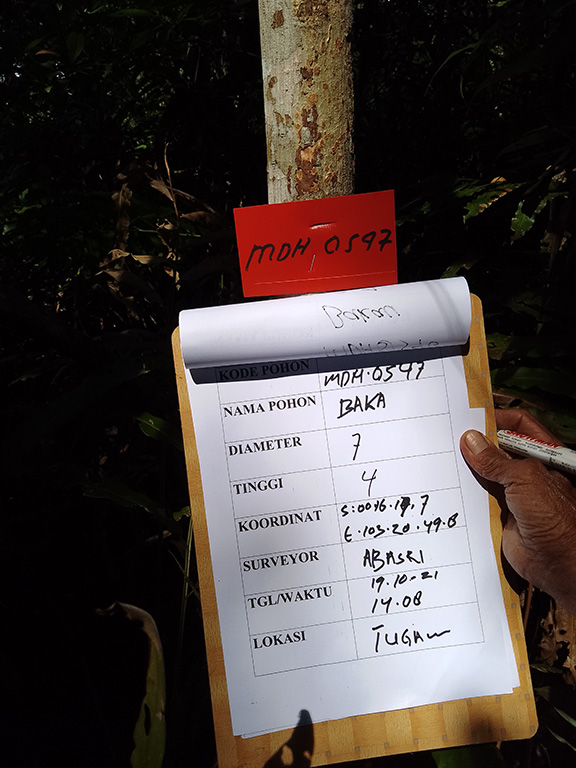 MDH, 0597
Bakan
KODE POHON MDH.0597
NAMA POHON BAKA
DIAMETER 7
TINGGI 4
KOORDINAT
E.103.20.49.8
SURVEYOR ABASRI
TGL/WAKTU 19.10-21
14.08
LOKASI TUGAU